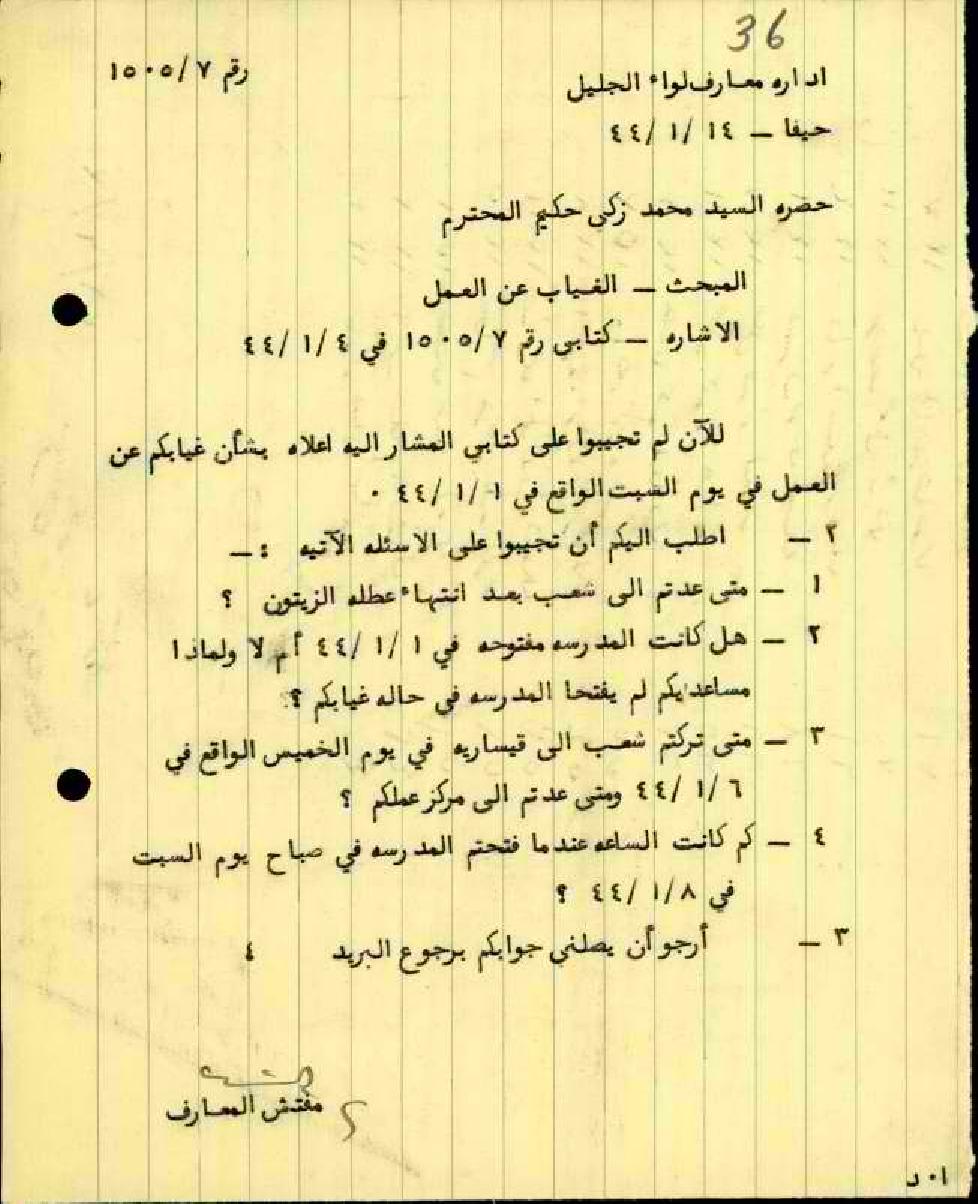 36
اداره معارف لواء الجليل
رقم ١٥٠٥/٧
حيفا – ١٤ /١ /٤٤
حضره السيد محمد زكي حكيم المحترم
المبحث – الغياب عن العمل
الاشاره – كتابي رقم ١٥٠٥/٧ في ٤ /١ /٤٤
للآن لم تجيبوا على كتابي المشار اليه اعلاه بشأن غيابكم عن
العمل في يوم السبت الواقع في ١ /١ /٤٤ ٠
٢ – اطلب اليكم أن تجيبوا على الاسئله الآتيه :–
١ – متى عدتم الى شعب بعد انتهاء عطله الزيتون ؟
٢ – هل كانت المدرسه مفتوحه في ١ /١ /٤٤ أم لا ولماذا
مساعدايكم لم يفتحا المدرسه في حاله غيابكم ؟
٣ – متى تركتم شعب الى قيساريه في يوم الخميس الواقع في
٦ /١ /٤٤ ومتى عدتم الى مركز عملكم ؟
٤ – كم كانت الساعه عندما فتحتم المدرسه في صباح يوم السبت
في ٨ /١ /٤٤ ؟
٣ – أرجو أن يصلني جوابكم برجوع البريد ٤
مفتش المعارف
ا٠د